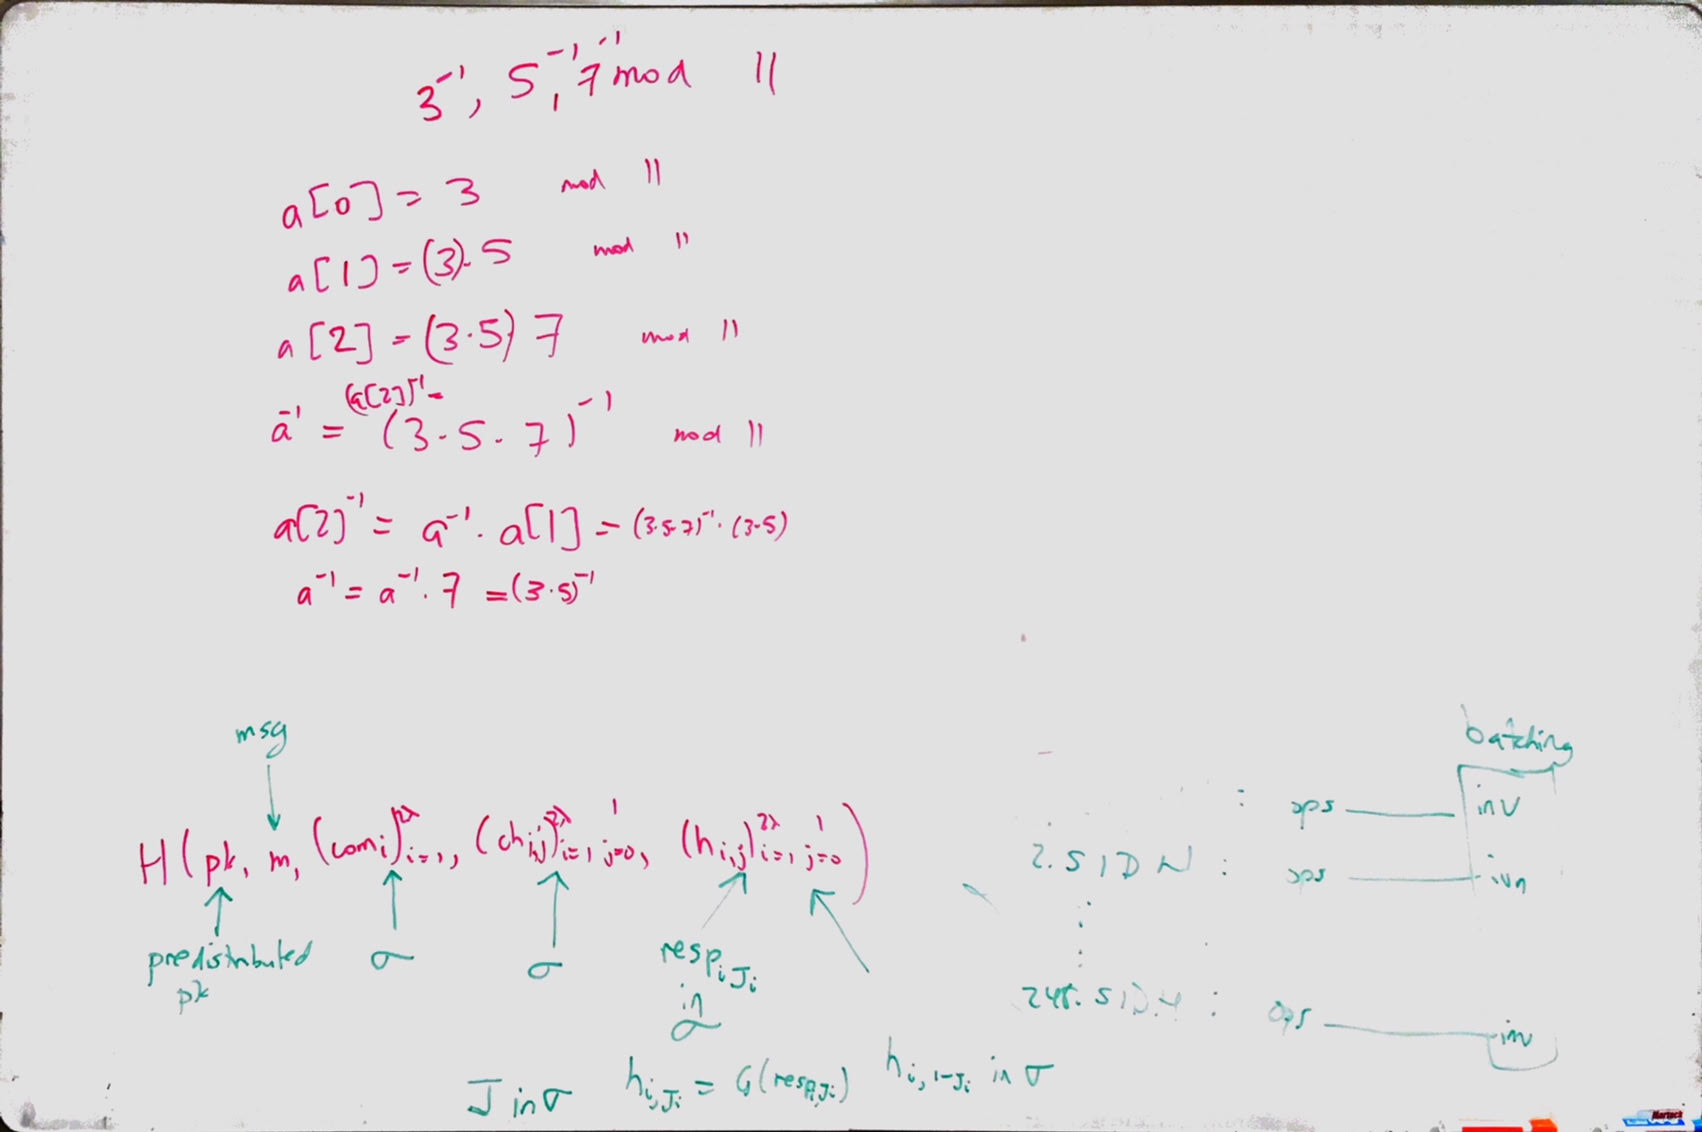 3⁻¹, 5⁻¹, 7⁻¹ mod 11
a[0] = 3 mod 11
a[1] = (3)·5 mod 11
a[2] = (3·5) 7 mod 11
(a[2])⁻¹ =
a⁻¹ = (3·5·7)⁻¹ mod 11
a[2]⁻¹ = a⁻¹ · a[1] = (3·5·7)⁻¹ · (3·5)
a⁻¹ = a⁻¹ · 7 = (3·5)⁻¹
msg
H(pk, m, (com_i)^{2λ}_{i=1}, (ch_{i,j})^{2λ}_{i=1}{}^{1}_{j=0}, (h_{i,j})^{2λ}_{i=1}{}^{1}_{j=0})
predistributed
pk
σ
σ
resp_{i J_i}
in
σ
J in σ h_{i,J_i} = G(resp_{i,J_i}) h_{i,1-J_i} in σ
batching
: ops inv
2. SIDH : ops inv
248. SIDH : ops inv